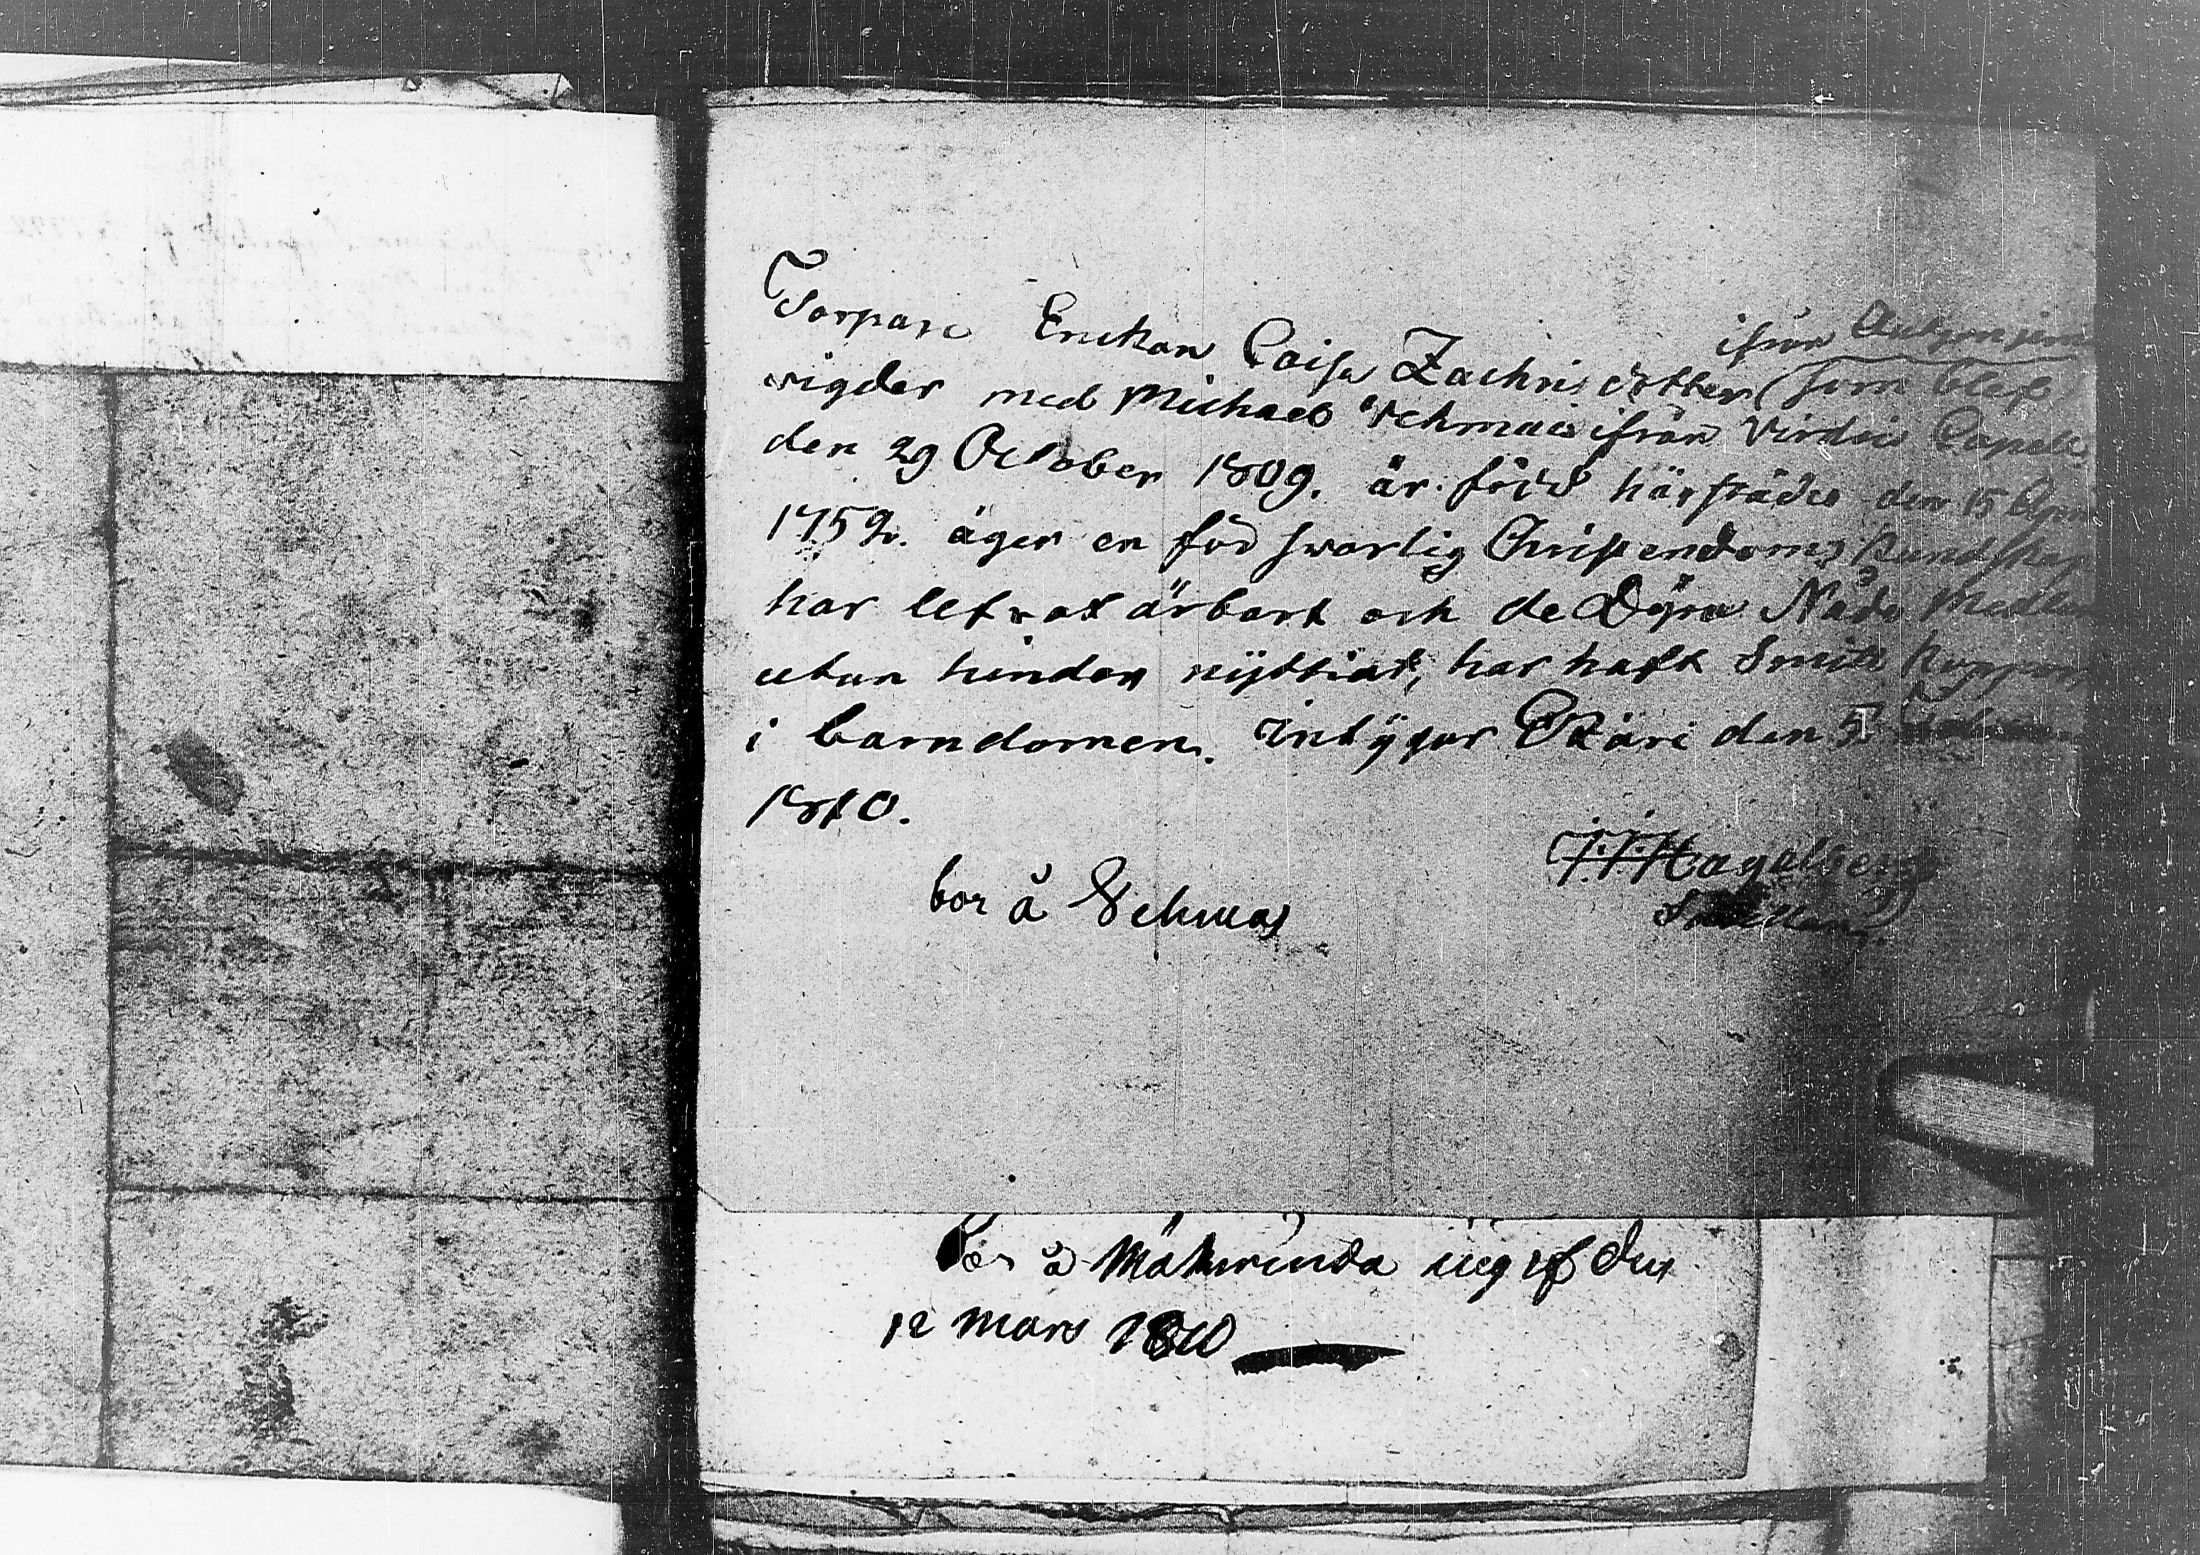 ifrån
Torpare Enckan Caisa Zachris dotter (som blef
vigder med Michael Vehmais ifrån Virdois Capell
den 29 October 1809. är född härstädes den 15
1752. äger en förswarlig Christendoms kundskap
har lefwat ärbart och de Dÿra Nåde Medlen
utan hinder nÿttiat, har haft Smitt koppor
i barndomen. Intÿgar Etzäri den 5
1810.
J. J. Hagelberg
bor å Vehmas
Bor å uig if den
12 Mars 1810